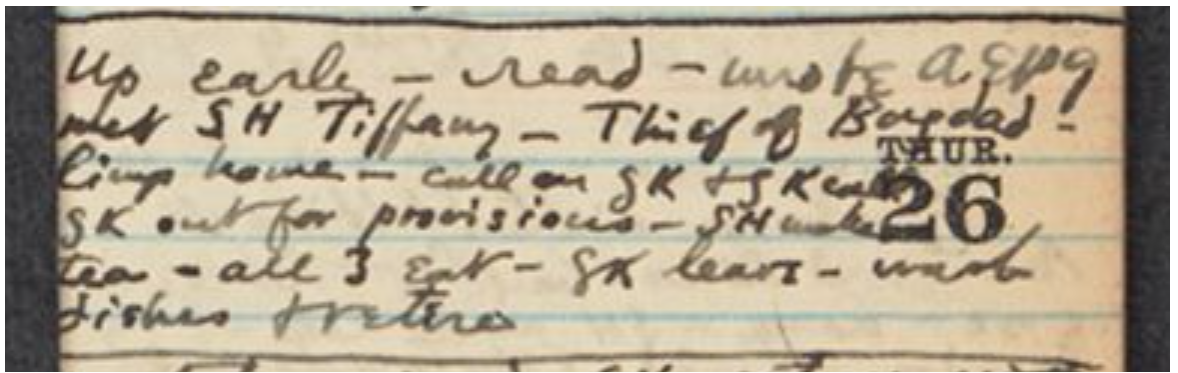 Up early – read – wrote
met SH Tiffany – Thief of Bagdad –
THUR.
limp home – call on GK + GK
26
GK out for provisions – SH make
tea – all 3 eat – GK leave – wash
dishes + retire